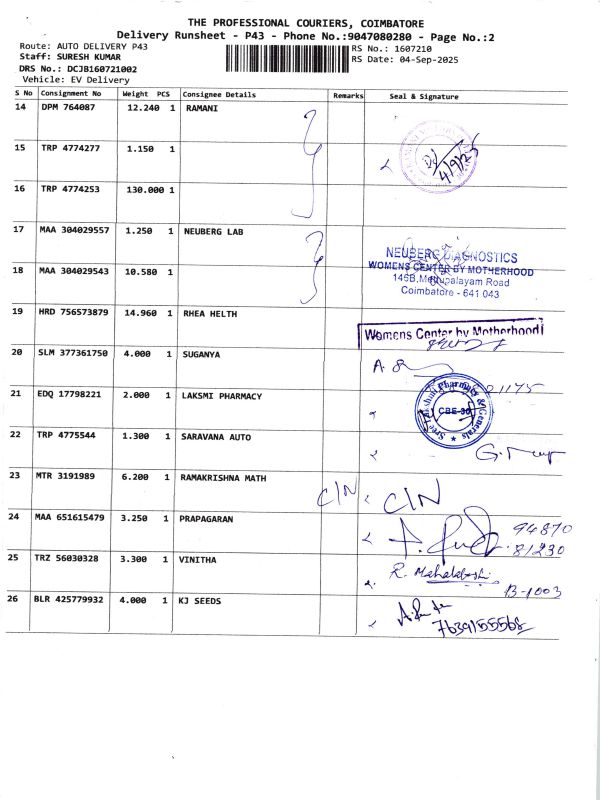 THE PROFESSIONAL COURIERS, COIMBATORE
Delivery Runsheet - P43 - Phone No.:9047080280 - Page No.:2
Route: AUTO DELIVERY P43
Staff: SURESH KUMAR
DRS No.: DCJB160721002
Vehicle: EV Delivery
RS No.: 1607210
RS Date: 04-Sep-2025
S No Consignment No Weight PCS Consignee Details Remarks Seal & Signature
14 DPM 764087 12.240 1 RAMANI
15 TRP 4774277 1.150 1
4/9/25
16 TRP 4774253 130.000 1
17 MAA 304029557 1.250 1 NEUBERG LAB
NEUBERG DIAGNOSTICS
WOMENS CENTER BY MOTHERHOOD
145B, Mettupalayam Road
Coimbatore - 641 043
18 MAA 304029543 10.580 1
19 HRD 756573879 14.960 1 RHEA HELTH
Womens Center by Motherhood
20 SLM 377361750 4.000 1 SUGANYA
21 EDQ 17798221 2.000 1 LAKSMI PHARMACY
Sree Lakshmi Pharmacy & Generals
CBE-30
22 TRP 4775544 1.300 1 SARAVANA AUTO
23 MTR 3191989 6.200 1 RAMAKRISHNA MATH C/N C/N
24 MAA 651615479 3.250 1 PRAPAGARAN
94870
81230
25 TRZ 56030328 3.300 1 VINITHA R. Mahalakshmi
B-1003
26 BLR 425779932 4.000 1 KJ SEEDS
7639155568